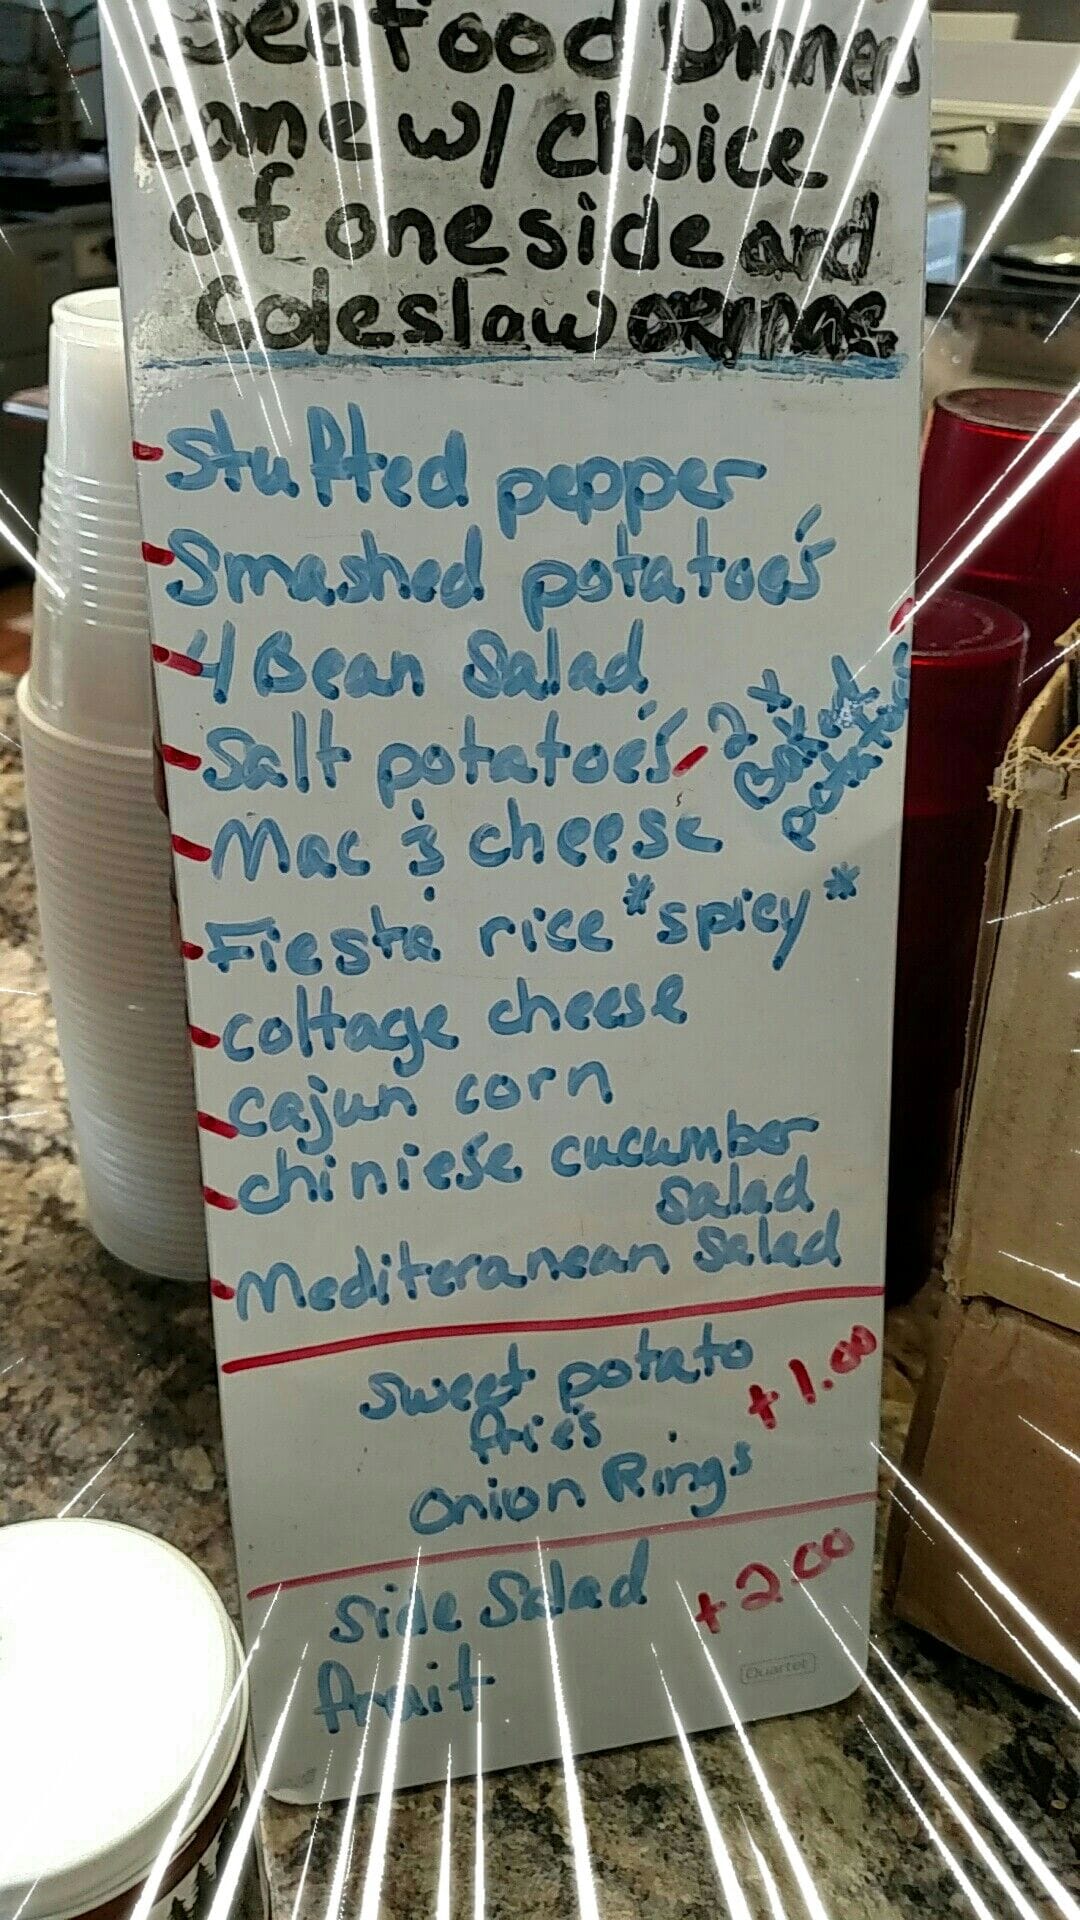 Seafood Dinners
Come w/ choice
of one side and
Coleslaw or
Stuffed pepper
Smashed potatoe's
4 Bean Salad
Salt potatoe's
2x
Baked
potatoes
Mac & cheese
Fiesta rice *spicy*
cottage cheese
cajun corn
chiniese cucumber
salad
Mediteranean salad
sweet potato
fries
+1.00
Onion Rings
Side Salad
+2.00
fruit
Quartet